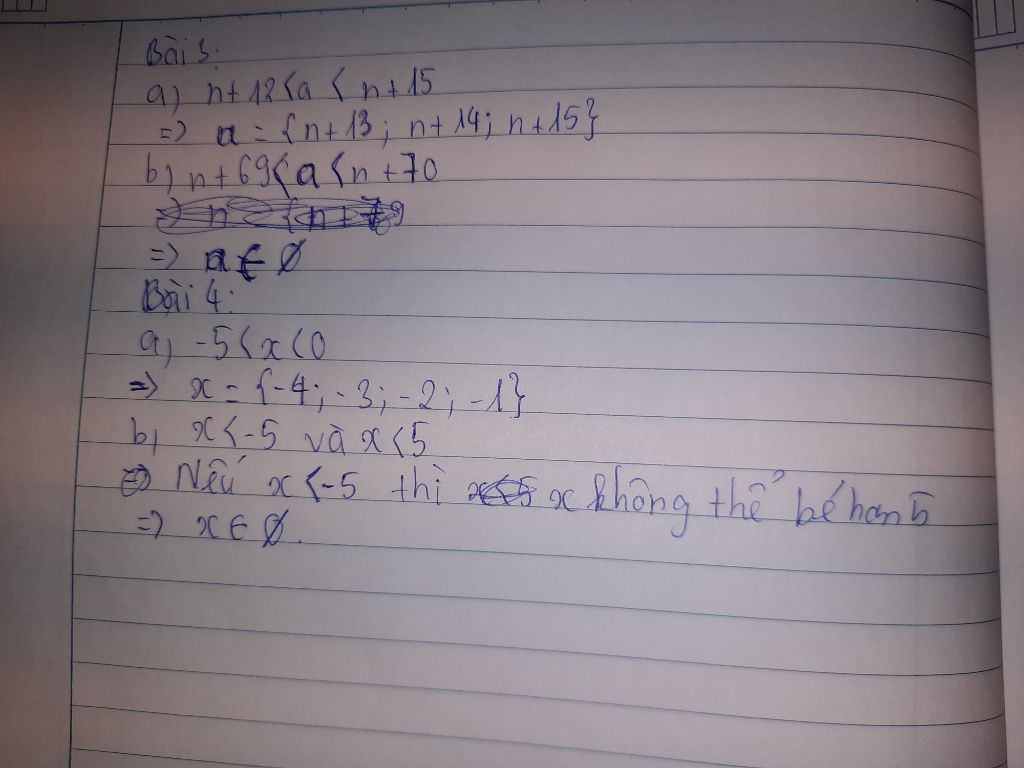 Bài 3:
a) n+12<a < n+15
=> a = {n+13; n+14; n+15}
b) n+69<a<n+70
=> a ∈ ∅
Bài 4:
a) -5<x<0
=> x = {-4; -3; -2; -1}
b) x<-5 và x<5
=> Nếu x<-5 thì x không thể bé hơn 5
=> x ∈ ∅.